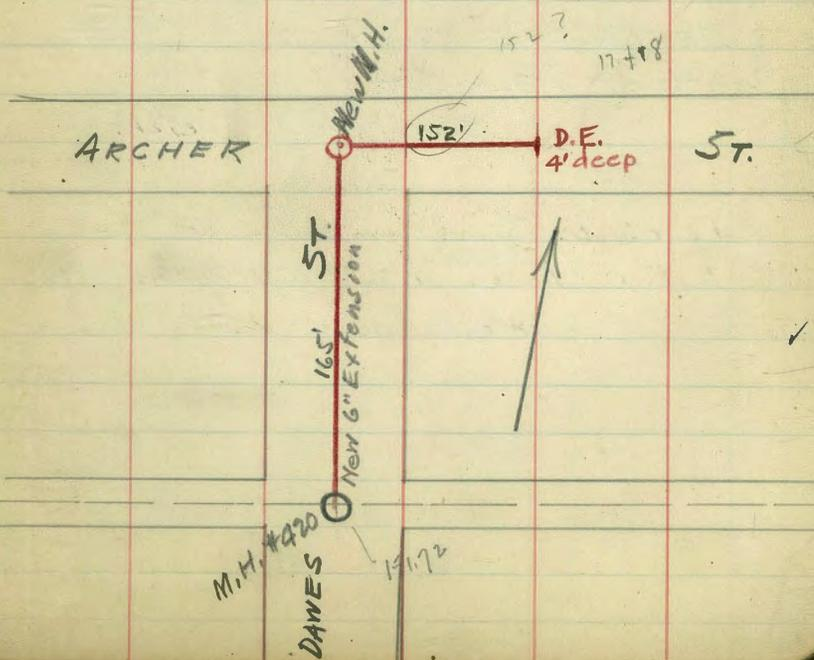 152?
New M.H.
ARCHER
152'
D.E.
4' deep
ST.
ST.
165'
New 6" Extension
M.H. #420
DAWES